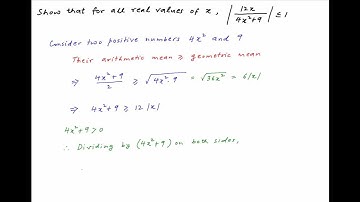 Show that for all real values of x, |12x / (4x²+9)| ≤ 1
Consider two positive numbers 4x² and 9
Their arithmetic mean ≥ geometric mean
⇒ (4x²+9) / 2 ≥ √(4x².9) = √(36x²) = 6|x|
⇒ 4x²+9 ≥ 12|x|
4x²+9>0
∴ Dividing by (4x²+9) on both sides,